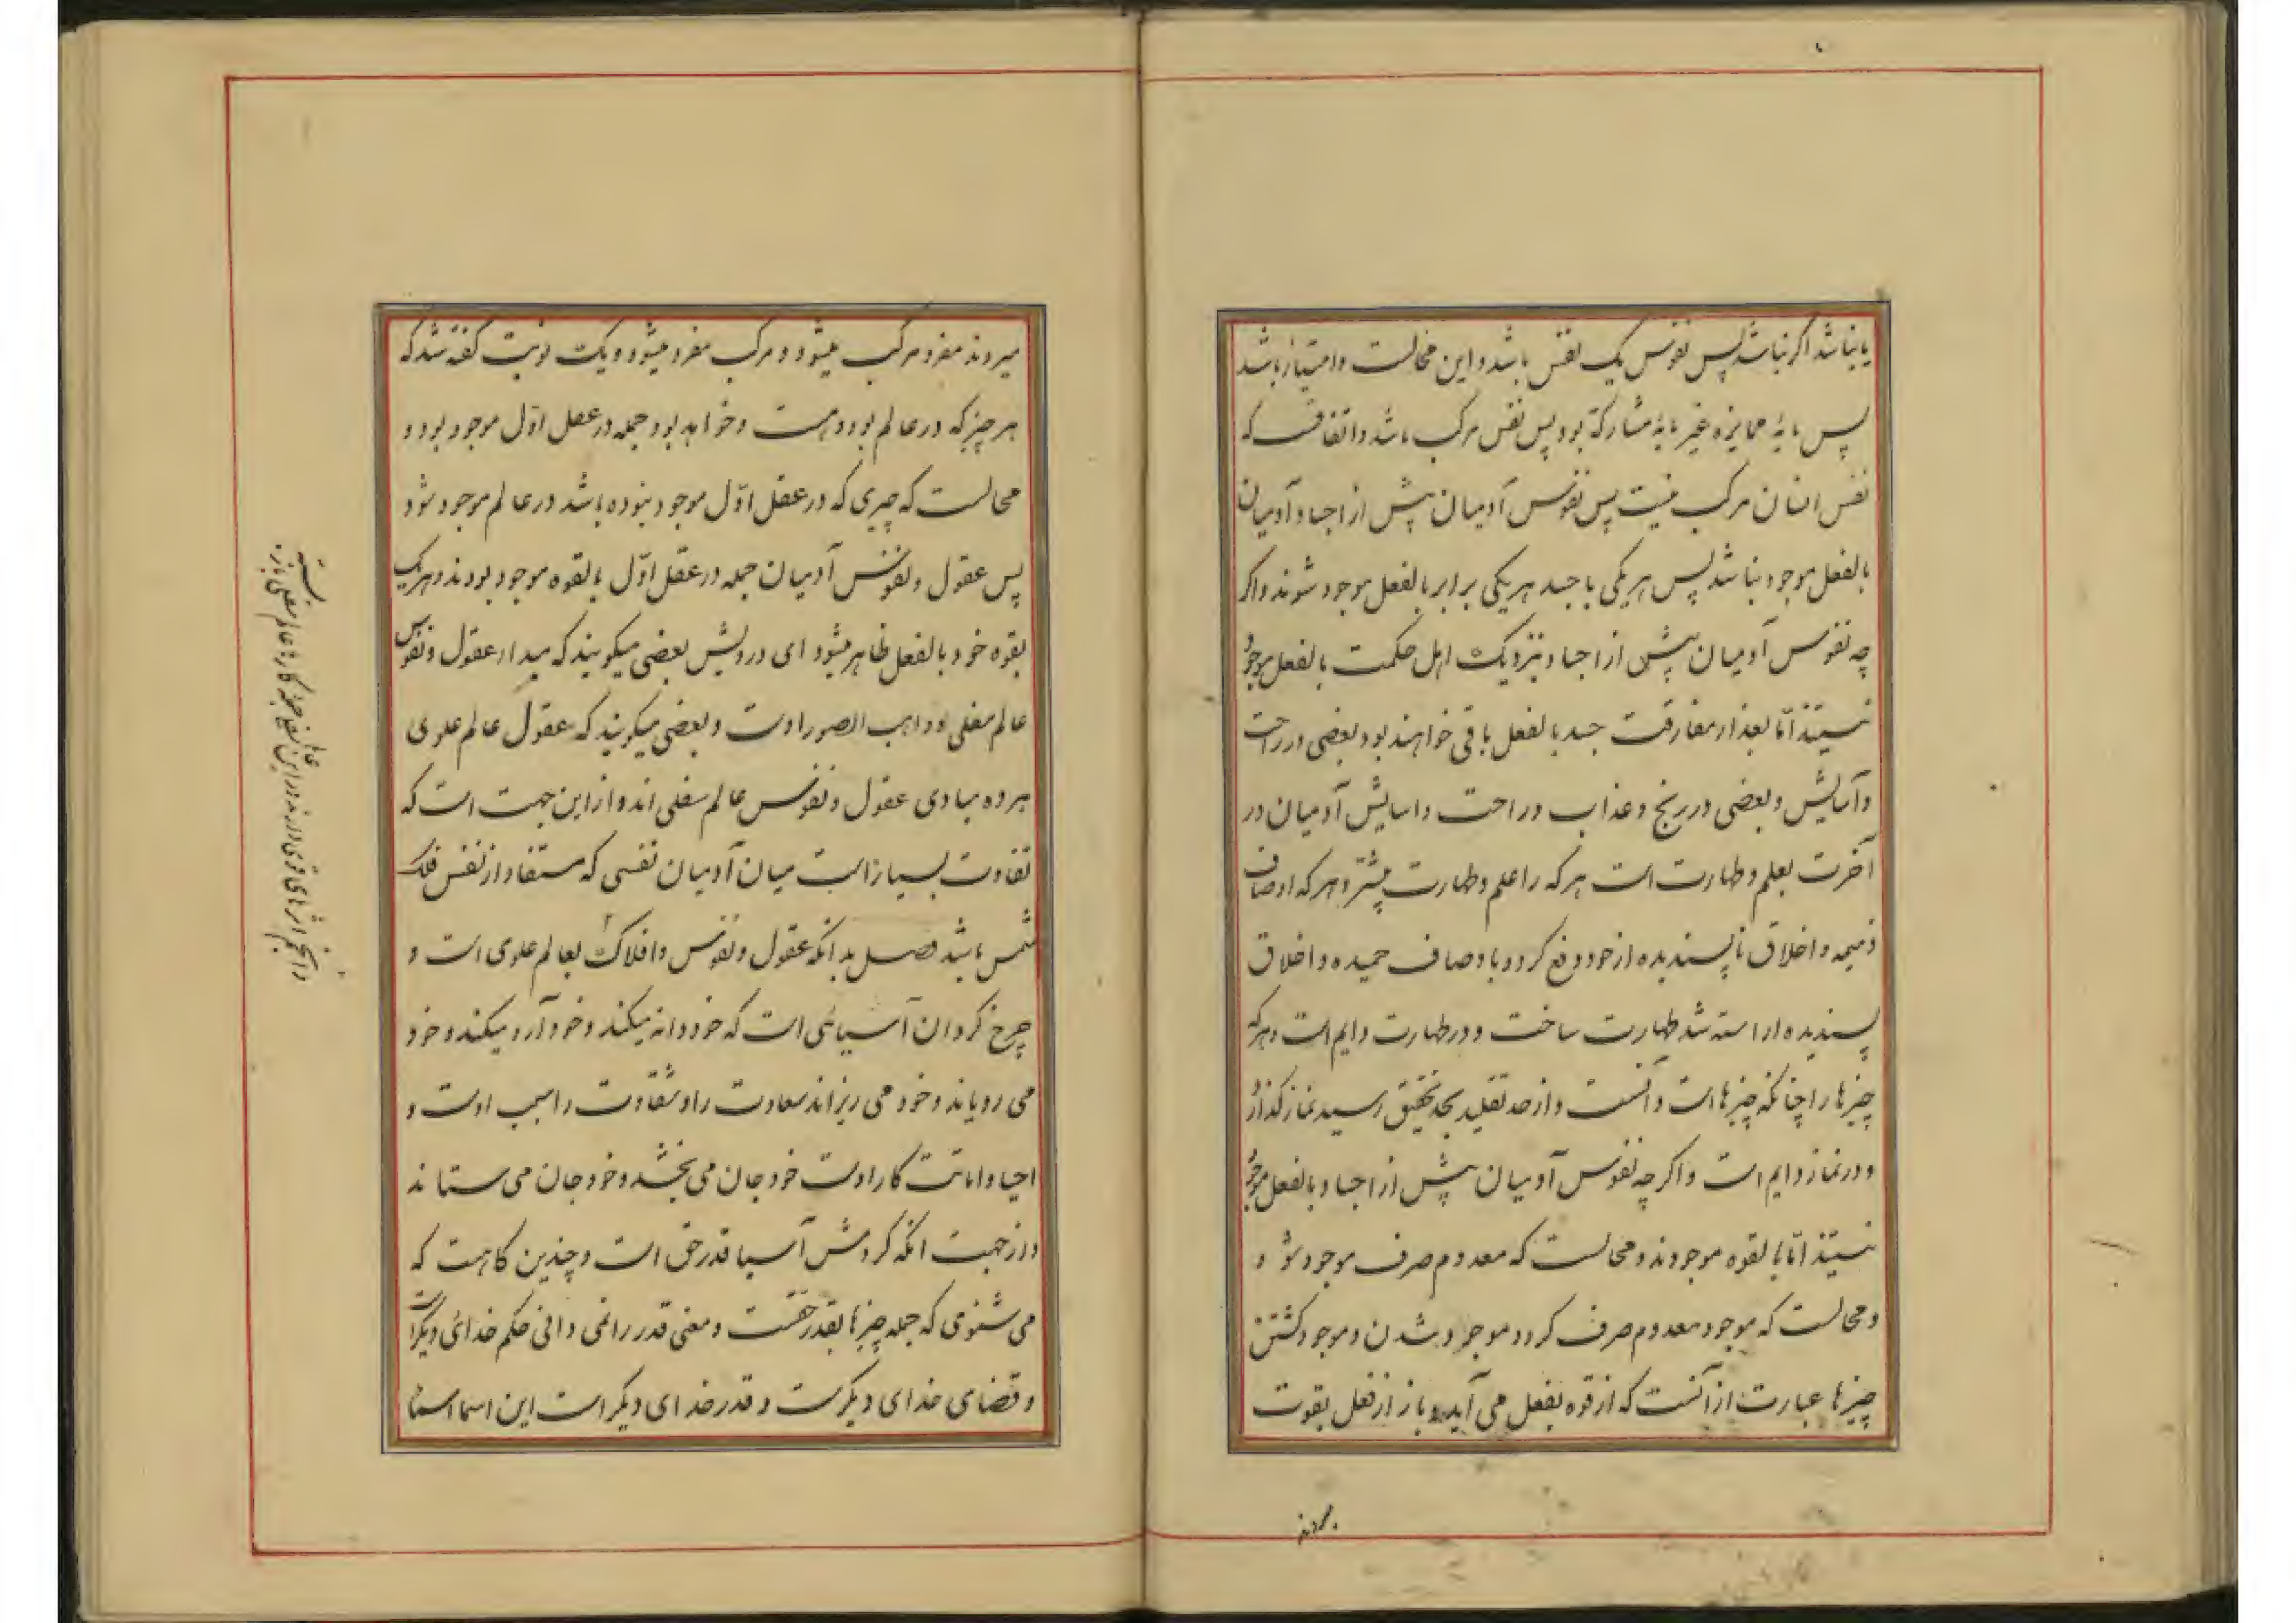 یا نباشد اگر نباشد پس نفوس یک نفس باشد و این محالست و امتیاز باشد
پس مابه ممایزه غیر مابه مشارکة بود پس نفس مرکب باشد و اتفاقست که
نفس انسان مرکب نیست پس نفوس آدمیان پیش از اجساد آدمیان
بالفعل موجود نباشد پس هر یکی با جسد هر یکی برابر بالفعل موجود شوند و اگر
چه نفوس آدمیان پیش از اجساد بنزدیک اهل حکمت بالفعل موجود
نیستند امّا بعد از مفارقت جسد بالفعل باقی خواهند بود بعضی در راحت
و آسایش و بعضی در رنج و عذاب و راحت و اسایش آدمیان در
آخرت بعلم و طهارت است هر که را علم و طهارت بیشتر و هر که اوصاف
ذمیمه و اخلاق ناپسندیده از خود دفع کرد و باوصاف حمیده و اخلاق
پسندیده اراسته شد طهارت ساخت و در طهارت دایم است و هر که
چیزها را چنانکه چیزها است دانست و از حد تقلید بحد تحقیق رسید نماز گذارد
و در نماز دایم است و اگر چه نفوس آدمیان پیش از اجساد بالفعل موجود
نیستند امّا بالقوه موجودند و محالست که معدوم صرف موجود شود
و محالست که موجود معدوم صرف گردد موجود شدن و موجود گشتن
چیزها عبارت از آنست که از قوه بفعل می آید و باز از فعل بقوت
میروند
میروند مفرد مرکب میشود و مرکب مفرد میشود و یک نوبت گفته شد که
هر چیز که در عالم بود و هست و خواهد بود جمله در عقل اوّل موجود بود و
محالست که چیزی که در عقل اوّل موجود نبوده باشد در عالم موجود شود
پس عقول و نفوس آدمیان جمله در عقل اوّل بالقوه موجود بودند و هر یک
بقوه خود بالفعل ظاهر میشود ای درویش بعضی میگویند که مبداء عقول و نفوس
عالم سفلی و واهب الصور اوست و بعضی میگویند که عقول عالم علوی
هر ده مبادی عقول و نفوس عالم سفلی اند و از این جهت است که
تفاوت بسیار است میان آدمیان نفسی که مستفاد از نفس فلک
شمس باشد فصل بدانکه عقول و نفوس و افلاک بعالم علوی است و
چرخ گردان آسیائی است که خود دانه میکند و خود آرد میکند و خود
می رویاند و خود می ریزاند سعادت را و شقاوت را سبب اوست و
احیا و اماتت کار اوست خود جان می بخشد و خود جان می ستاند
و از جهت انکه گردش آسیا قدر حق است و چندین گاهست که
می شنوی که جمله چیزها بقدر حقست و معنی قدر را نمی دانی حکم خدای دیگر است
و قضای خدای دیگرست و قدر خدای دیگر است این اسما اسما